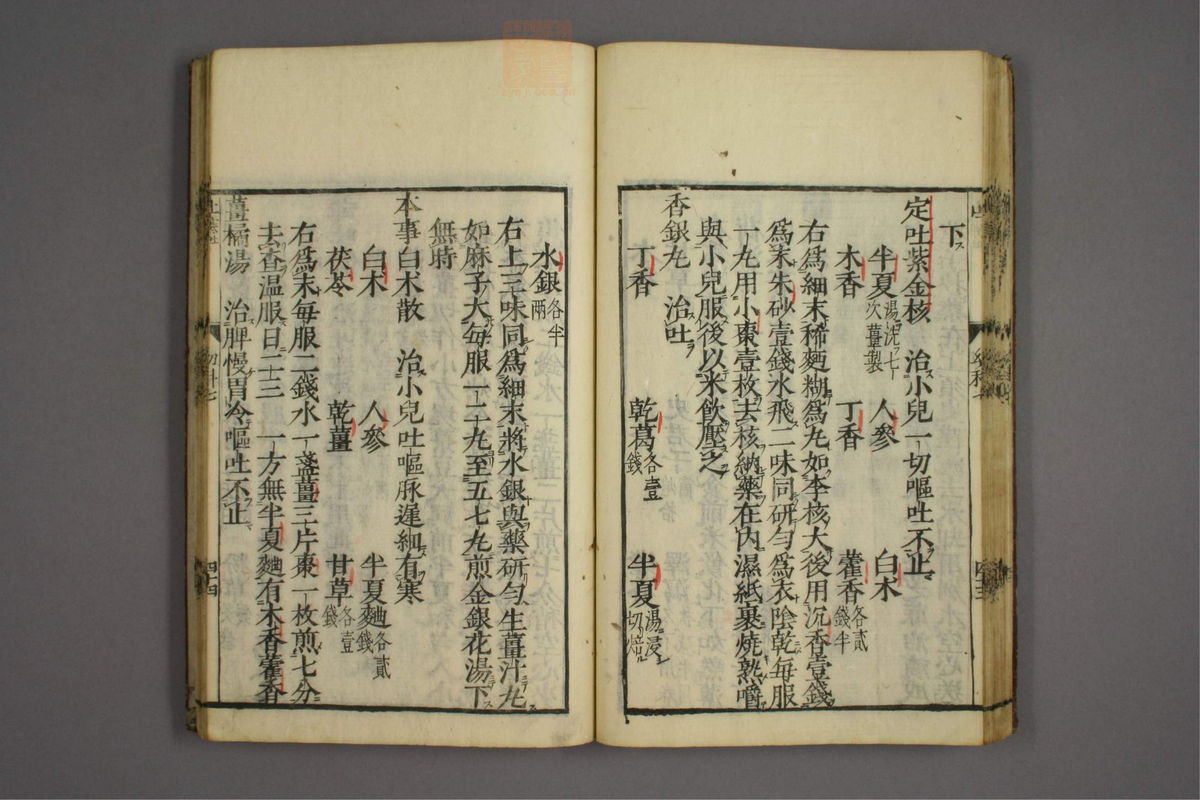 下
定吐紫金核 治小兒一切嘔吐不止
半夏湯洗七次薑製 人參 白朮
木香 丁香 藿香各貳錢半
右爲細末稀麪糊爲丸如李核大後用沉香壹錢
爲末朱砂壹錢水飛二味同研勻爲衣陰乾每服
一丸用小棗壹枚去核納藥在內濕紙裹燒熟嚼
與小兒服後以米飲壓之
香銀丸 治吐
丁香 乾葛各壹錢 半夏湯浸切焙
水銀各半兩
右上三味同爲細末將水銀與藥研勻生薑汁丸
如麻子大每服一二十丸至五七丸煎金銀花湯下
無時
本事白朮散 治小兒吐嘔脉遲細有寒
白朮 人參 半夏麯各貳錢
茯苓 乾薑 甘草各壹錢
右爲末每服二錢水一盞薑三片棗一枚煎七分
去查温服日二三 一方無半夏麯有木香藿香
薑橘湯 治脾慢胃冷嘔吐不止
四十四